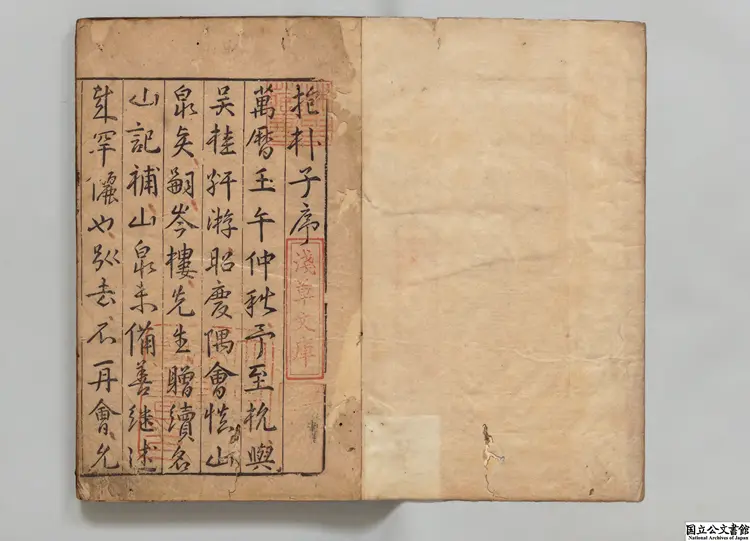 抱朴子序
萬曆壬午仲秋予至杭與
吳桂軒游昭慶隅會慎山
泉矣嗣岑樓先生贈續名
山記補山泉未備善継述
哉罕儷也別去不再會允
淺草文庫
国立公文書館
National Archives of Japan